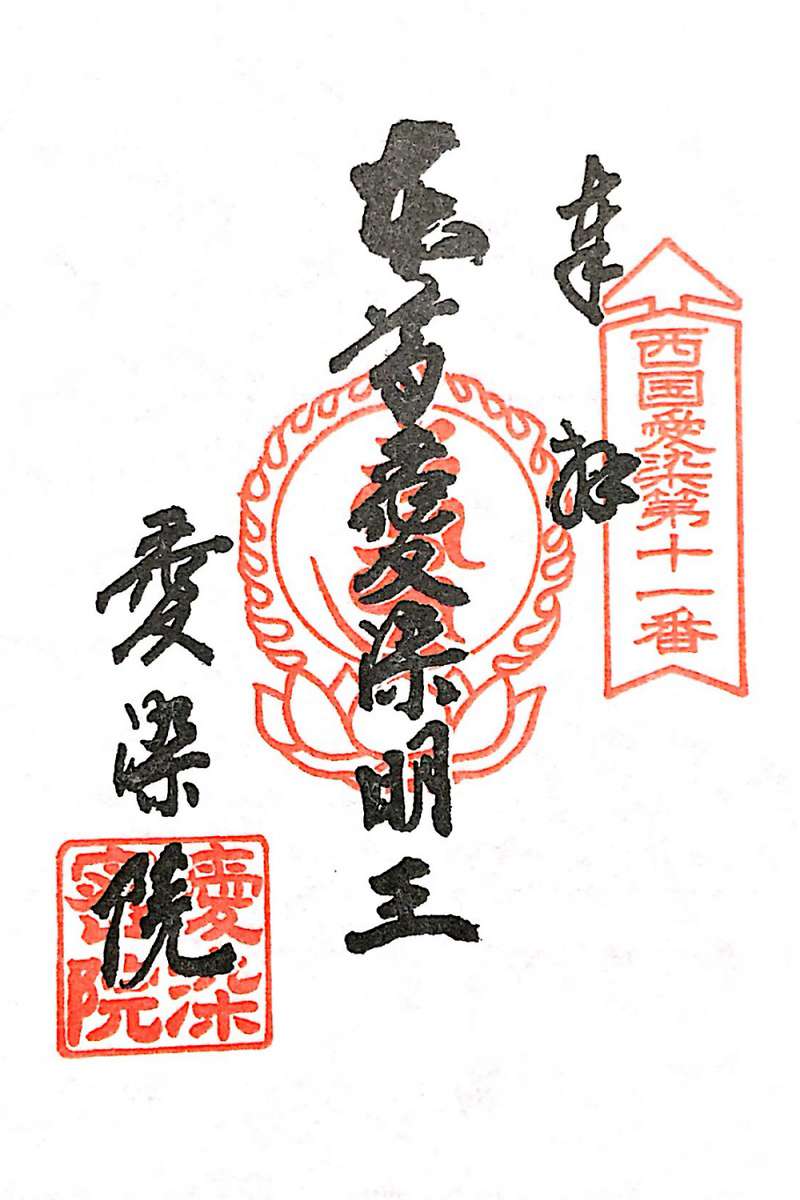 奉拝
西国愛染第十一番
愛染明王
愛染院
愛染
院